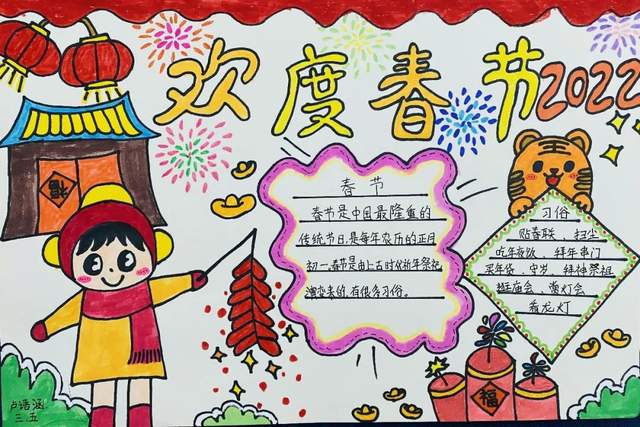 欢度春节2022
福
春节
春节是中国最隆重的
传统节日,是每年农历的正月
初一.春节是由上古时代祈年祭祀
演变来的,有很多习俗。
习俗
贴春联、扫尘
吃年夜饭、拜年串门
买年货、守岁、拜神祭祖
逛庙会、演灯会
看龙灯
福
卢语涵
三、五